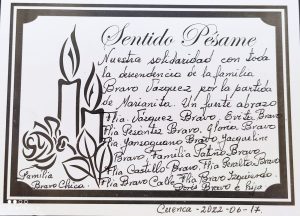 Sentido Pésame
Nuestra solidaridad con toda
la descendencia de la familia
Bravo Vazquez por la partida
de Marianita. Un fuerte abrazo
Flia. Vázquez Bravo, Evita Bravo
Flia Bravo, Gloria Bravo
Flia Bravo Jacqueline
Bravo, Familia Bravo
Flia Castillo Bravo, Flia Peralta Bravo
Flia Bravo Calle, Flia Bravo Izquierdo.
Doris Bravo e hija
Familia
Bravo Chica.
Cuenca - 2022-06-17